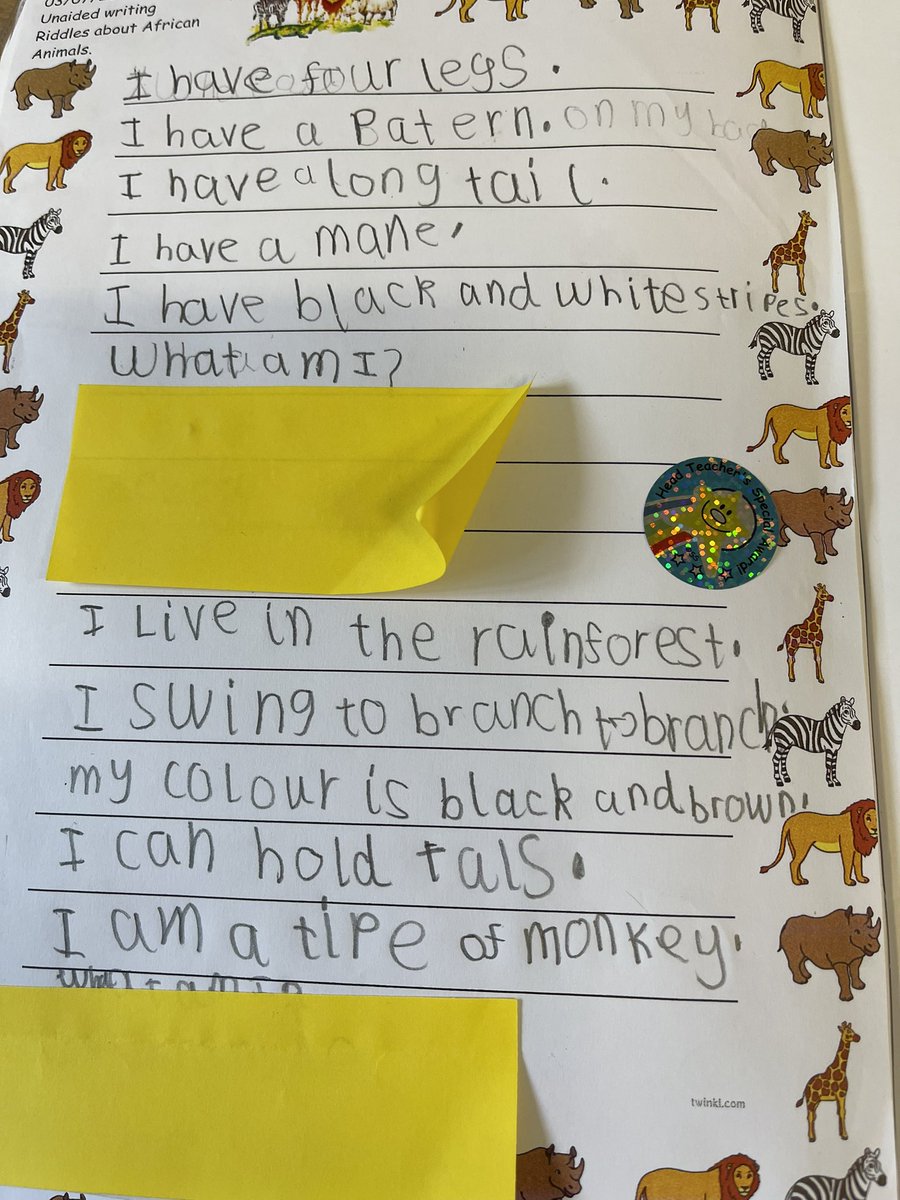 Unaided writing
Riddles about African
Animals.
I have four legs.
I have a Batern. on my
I have a long tail.
I have a mane.
I have black and white stripes.
What am I?
Head Teacher's Special Award!
I Live in the rainforest.
I swing to branch to branch.
my colour is black and brown.
I can hold tals.
I am a tipe of monkey.
twinkl.com